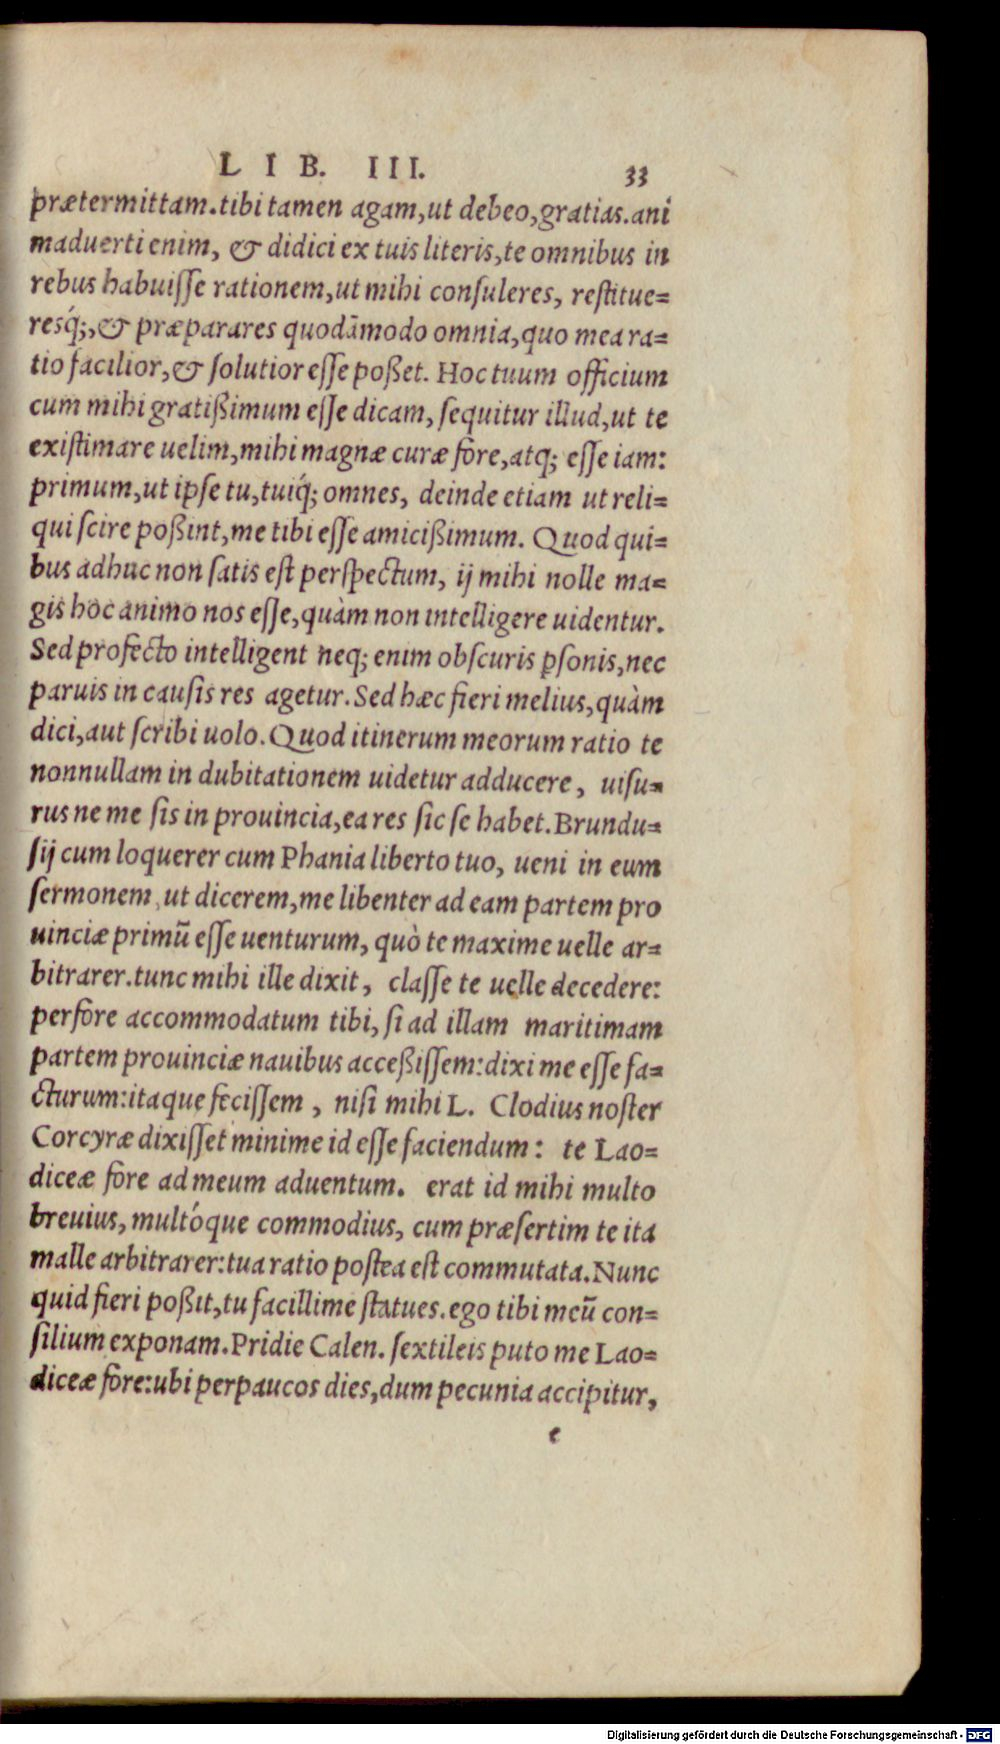 LIB. III. 33
prætermittam.tibi tamen agam,ut debeo,gratias.ani
maduerti enim, & didici ex tuis literis,te omnibus in
rebus habuiſſe rationem,ut mihi conſuleres, reſtitue=
resq́;,& præparares quodāmodo omnia,quo mea ra=
tio facilior,& ſolutior eſſe poßet. Hoc tuum officium
cum mihi gratißimum eſſe dicam, ſequitur illud,ut te
exiſtimare uelim,mihi magnæ curæ fore,atq; eſſe iam:
primum,ut ipſe tu,tuiq́; omnes, deinde etiam ut reli=
qui ſcire poßint,me tibi eſſe amicißimum. Quod qui=
bus adhuc non ſatis eſt perſpectum, ij mihi nolle ma=
gis hoc animo nos eſſe,quàm non intelligere uidentur.
Sed profecto intelligent neq; enim obſcuris p̱ſonis,nec
paruis in cauſis res agetur.Sed hæc fieri melius,quàm
dici,aut ſcribi uolo.Quod itinerum meorum ratio te
nonnullam in dubitationem uidetur adducere, uiſu=
rus ne me ſis in prouincia,ea res ſic ſe habet.Brundu=
ſij cum loquerer cum Phania liberto tuo, ueni in eum
ſermonem ut dicerem,me libenter ad eam partem pro
uinciæ primū eſſe uenturum, quò te maxime uelle ar=
bitrarer.tunc mihi ille dixit, claſſe te uelle decedere:
perfore accommodatum tibi, ſi ad illam maritimam
partem prouinciæ nauibus acceßiſſem:dixi me eſſe fa=
cturum:itaque feciſſem, niſi mihi L. Clodius noſter
Corcyræ dixiſſet minime id eſſe faciendum: te Lao=
diceæ fore ad meum aduentum. erat id mihi multo
breuius, multóque commodius, cum præſertim te ita
malle arbitrarer:tua ratio poſtea eſt commutata.Nunc
quid fieri poßit,tu facillime ſtatues.ego tibi meū con=
ſilium exponam.Pridie Calen. ſextileis puto me Lao=
diceæ fore:ubi perpaucos dies,dum pecunia accipitur,
e
Digitalisierung gefördert durch die Deutsche Forschungsgemeinschaft - DFG